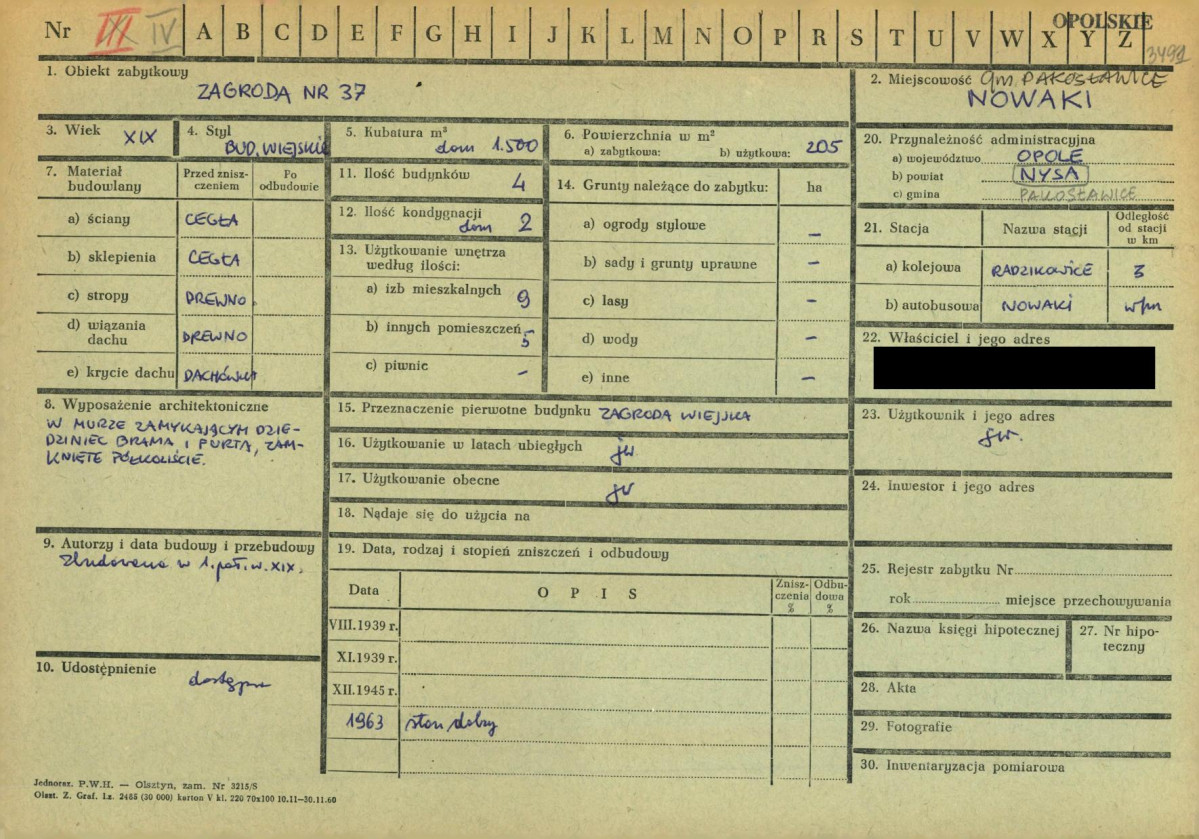 Nr III IV A B C D E F G H I J K L M N O P R S T U V W X Y Z
OPOLSKIE
3491
1. Obiekt zabytkowy
ZAGRODA NR 37
2. Miejscowość gm. PAKOSŁAWICE
NOWAKI
3. Wiek XIX
4. Styl
BUD. WIEJSKIE
5. Kubatura m³
dom 1.500
6. Powierzchnia w m²
a) zabytkowa: b) użytkowa: 205
7. Materiał budowlany
Przed zniszczeniem
Po odbudowie
a) ściany CEGŁA
b) sklepienia CEGŁA
c) stropy DREWNO
d) wiązania dachu DREWNO
e) krycie dachu DACHÓWKA
8. Wyposażenie architektoniczne
W MURZE ZAMYKAJĄCYM DZIE-
DZINIEC BRAMA I FURTA, ZAM-
KNIĘTE PÓŁKOLIŚCIE.
9. Autorzy i data budowy i przebudowy
Zbudowana w 1. poł. w. XIX.
10. Udostępnienie
dostępna
11. Ilość budynków 4
12. Ilość kondygnacji
dom 2
13. Użytkowanie wnętrza
według ilości:
a) izb mieszkalnych 9
b) innych pomieszczeń 5
c) piwnic -
14. Grunty należące do zabytku: ha
a) ogrody stylowe -
b) sady i grunty uprawne -
c) lasy -
d) wody -
e) inne -
15. Przeznaczenie pierwotne budynku ZAGRODA WIEJSKA
16. Użytkowanie w latach ubiegłych jw
17. Użytkowanie obecne jw
18. Nadaje się do użycia na
19. Data, rodzaj i stopień zniszczeń i odbudowy
Data OPIS Znisz-czenia % Odbu-dowa %
VIII.1939 r.
XI.1939 r.
XII.1945 r.
1963 stan dobry
20. Przynależność administracyjna
a) województwo OPOLE
b) powiat NYSA
c) gmina PAKOSŁAWICE
21. Stacja Nazwa stacji Odległość od stacji w km
a) kolejowa RADZIKOWICE 3
b) autobusowa NOWAKI w/m
22. Właściciel i jego adres
23. Użytkownik i jego adres
jw.
24. Inwestor i jego adres
25. Rejestr zabytku Nr
rok miejsce przechowywania
26. Nazwa księgi hipotecznej
27. Nr hipo-
teczny
28. Akta
29. Fotografie
30. Inwentaryzacja pomiarowa
Jednoraz. P.W.H. — Olsztyn, zam. Nr 3215/S
Olszt. Z. Graf. Lz. 2485 (30 000) karton V kl. 220 70x100 10.11—30.11.60